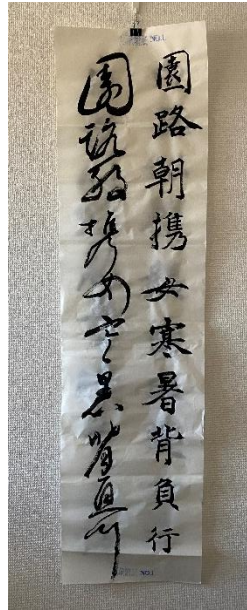 園路朝携女寒暑背負行
園路朝携女寒暑背負行